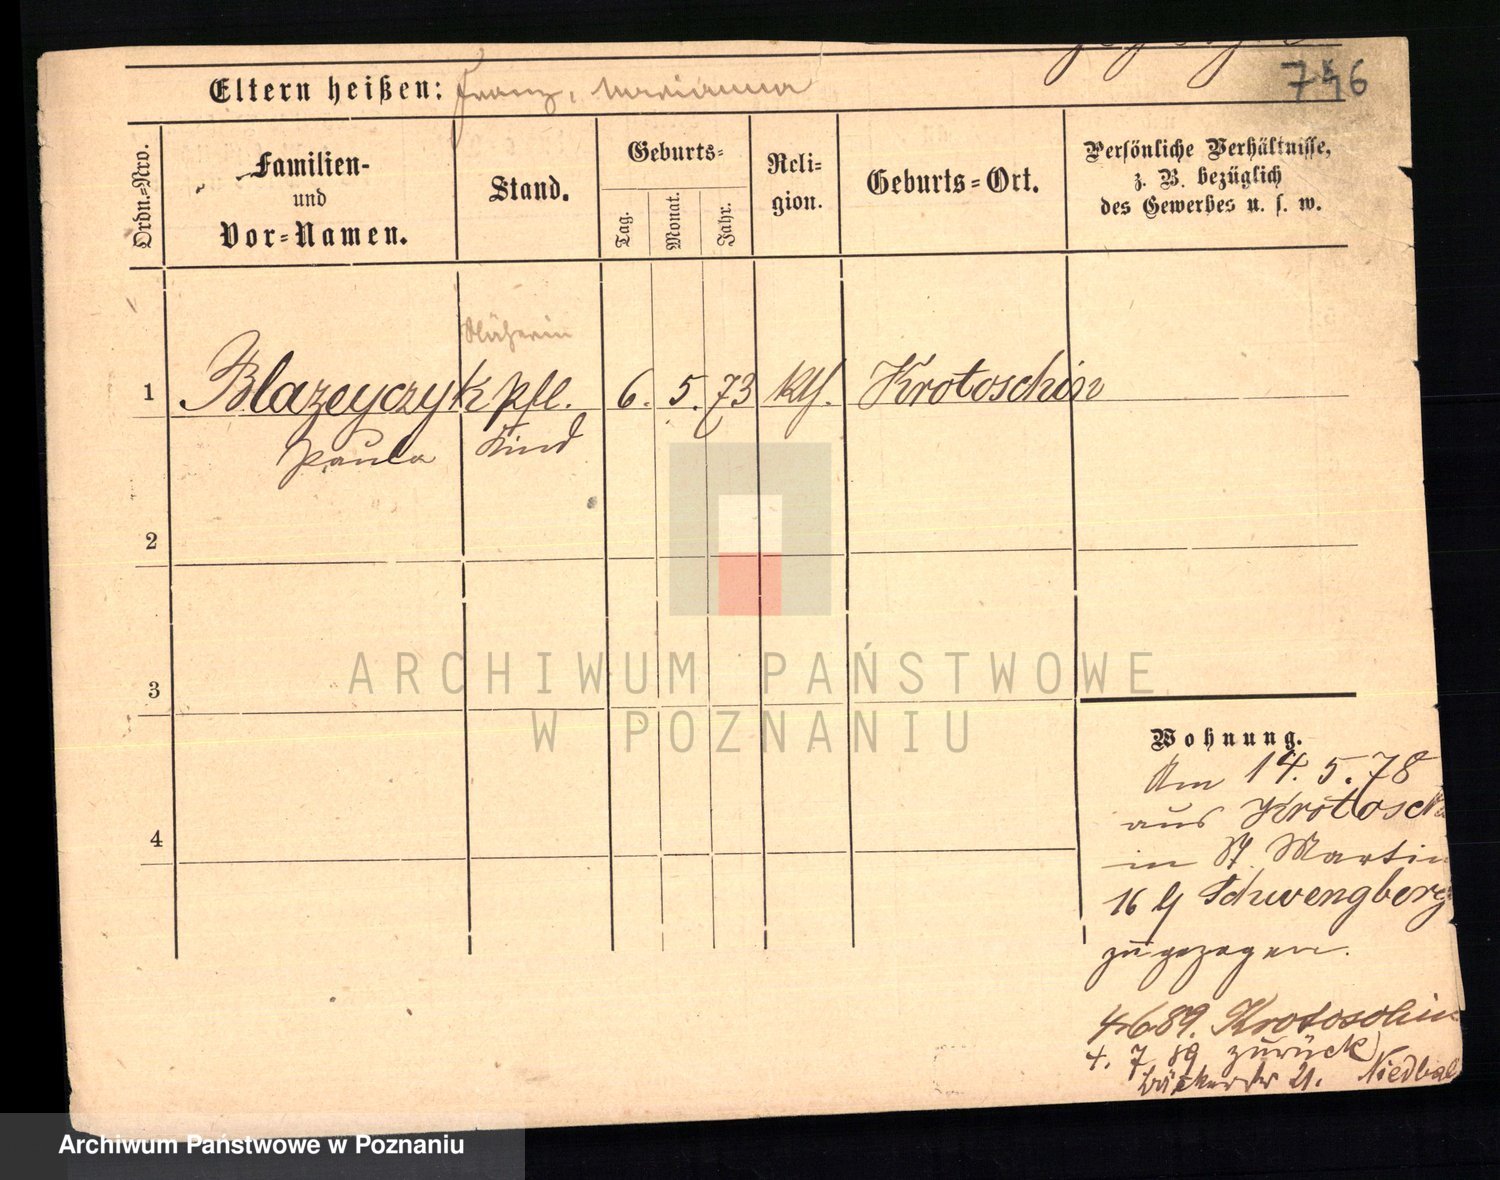 746
Eltern heißen: Franz, Marianna
Ordn.=Nro.
Familien-
und
Vor=Namen.
Stand.
Geburts=
Tag.
Monat.
Jahr.
Reli-
gion.
Geburts=Ort.
Persönliche Verhältnisse,
z. B. bezüglich
des Gewerbes u. s. w.
Näherin
1 Blazeyczyk pfl. 6. 5. 73 kth. Krotoschin
Paula Kind
2
3
4
ARCHIWUM PAŃSTWOWE
W POZNANIU
Wohnung.
Am 14. 5. 78
aus Krotosch
in St. Martin
16 b/ Schwengberg
zugezogen.
4689. Krotoschin
4. 7 89 zurück
Bäckerstr 21. Niedbal
Archiwum Państwowe w Poznaniu